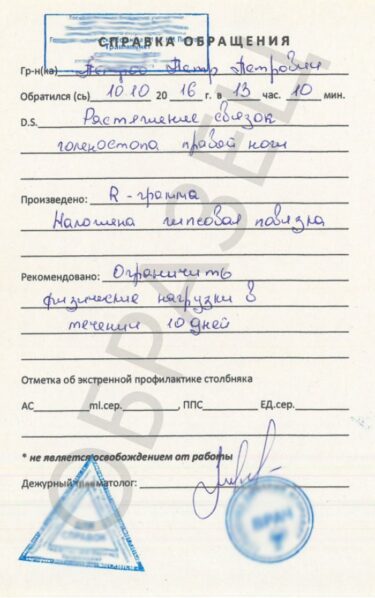 СПРАВКА ОБРАЩЕНИЯ
Гр-н(ка) Петров Петр Петрович
Обратился (сь) 10.10 2016 г. в 13 час. 10 мин.
D.S. Растяжение связок
голеностопа правой ноги
Произведено: R-грамма
Наложена гипсовая повязка
Рекомендовано: Ограничить
физические нагрузки в
течении 10 дней
Отметка об экстренной профилактике столбняка
АС ml.сер. , ППС ЕД.сер.
* не является освобождением от работы
Дежурный травматолог:
СПРАВОК
ВРАЧ
ОБРАЗЕЦ